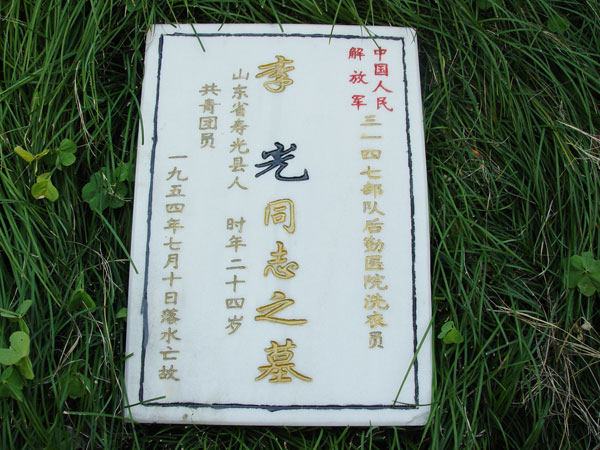 中国人民
解放军
三一四七部队后勤医院洗衣员
李光同志之墓
山东省寿光县人 时年二十四岁
共青团员
一九五四年七月十日落水亡故